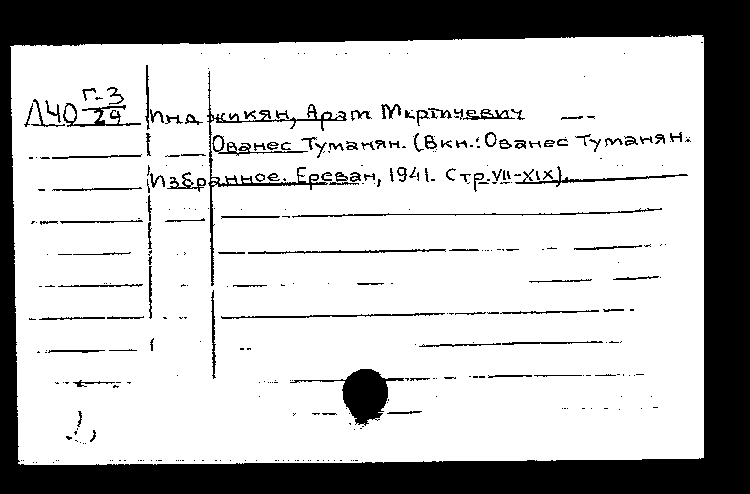 Л40 Г-3/29
Инджикян, Арам Мкртичевич
Ованес Туманян. (В кн.: Ованес Туманян.
Избранное. Ереван, 1941. Стр. VII-XIX).